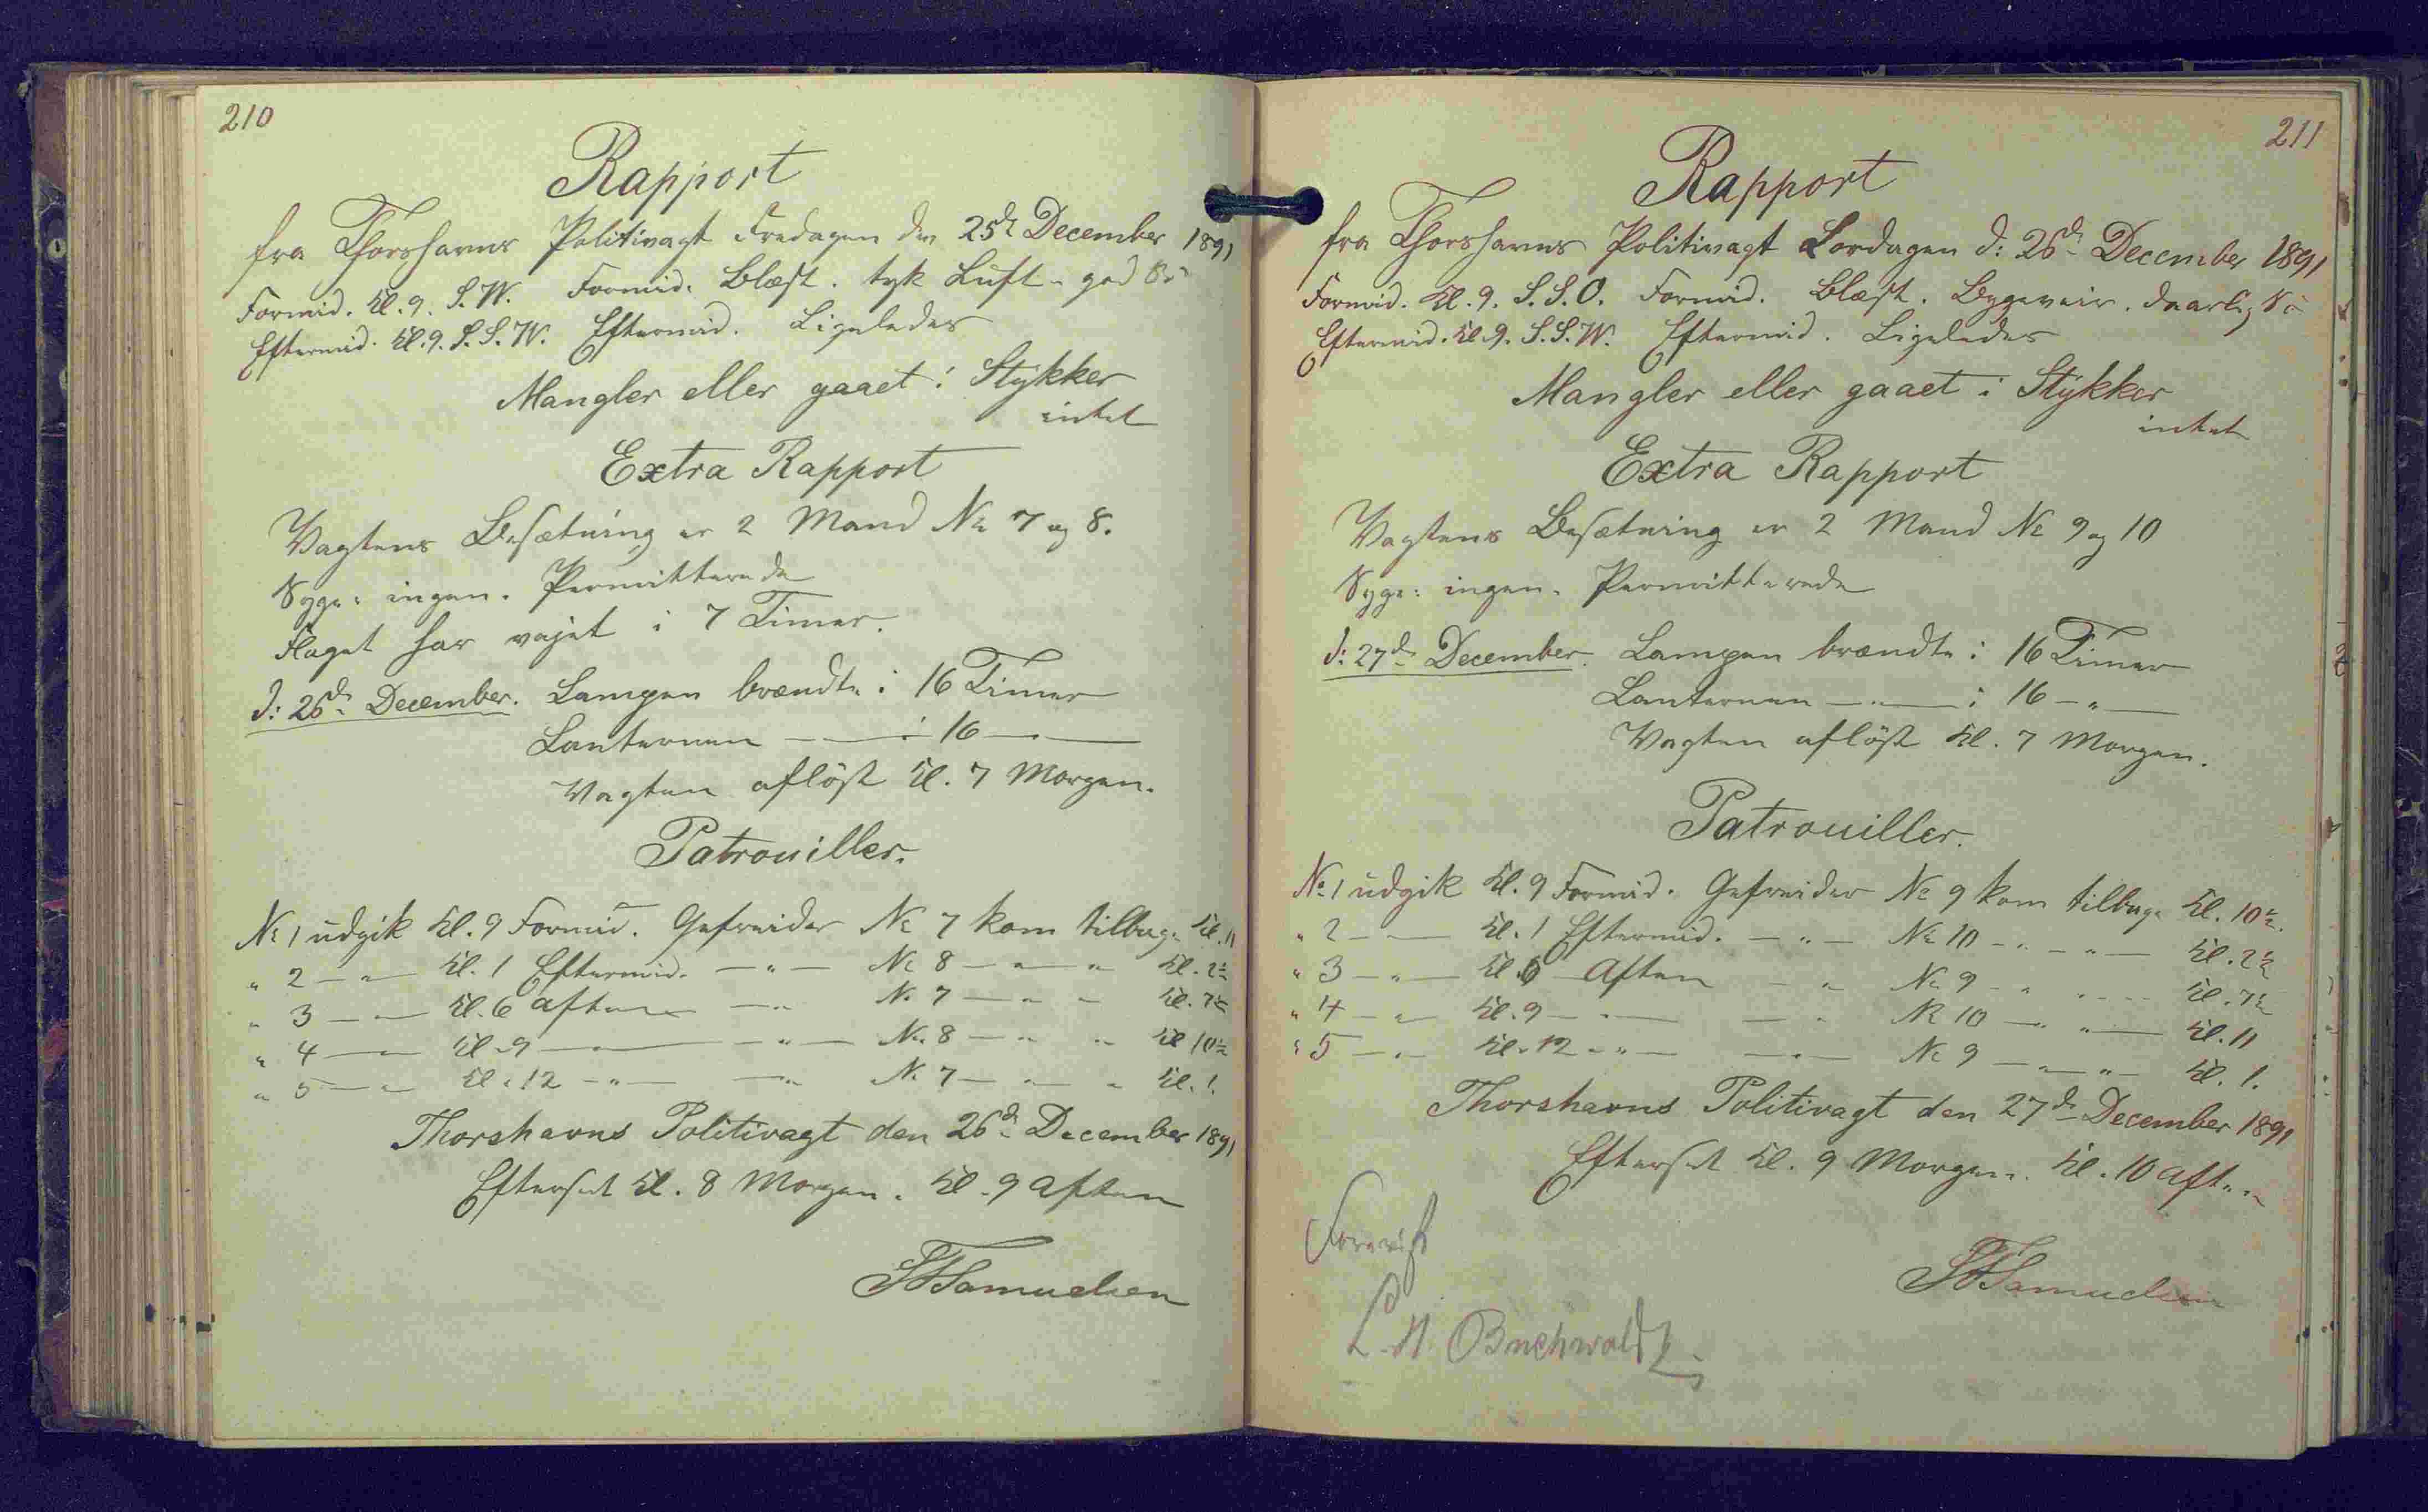 210
Rapport
fra Thorshavns Politivagt Fredagen den 25de December 1891
Formid. Kl. 9. S.W. Formid. Blæst. tyk Luft - god Sö
Eftermid. Kl. 9. S.S.W. Eftermid. Ligeledes
Mangler eller gaaet i Stykker
intet
Extra Rapport
Vagtens Besætning er 2 Mand No 7 og 8.
Syge: ingen. Permitterede
Flaget har vajet i 7 Timer.
d: 26de December. Lampen brændte i 16 Timer
Lanternen — i 16 — " —
Vagten aflöst Kl. 7 Morgen.
Patrouiller.
No 1 udgik Kl. 9 Formid. Gefreider No 7 kom tilbage Kl. 11
" 2 — " — Kl. 1 Eftermid. — " — No 8 — " — " Kl. 2½
" 3 — " — Kl. 6 Aften — " No 7 — " — Kl. 7½
" 4 — " — Kl. 9 — " — — " — No 8 — " " Kl. 10½
" 5 — " — Kl. 12 — " — — " No 7 — " — " Kl. 1.
Thorshavns Politivagt den 26de December 1891
Efterset Kl. 8 Morgen. Kl. 9 Aften
Samuelsen
211
Rapport
fra Thorshavns Politivagt Lørdagen d: 26de December 1891
Formid. Kl. 9. S.S.O. Formid. Blæst. Bygeveir. daarlig Sö
Eftermid. Kl. 9. S.S.W. Eftermid. Ligeledes
Mangler eller gaaet i Stykker
intet
Extra Rapport
Vagtens Besætning er 2 Mand No 9 og 10
Syge: ingen. Permitterede
d: 27de December. Lampen brændte i 16 Timer
Lanternen — " — i 16 — " —
Vagten aflöst Kl. 7 Morgen.
Patrouiller.
No 1 udgik Kl. 9 Formid. Gefreider No 9 kom tilbage Kl. 10½.
" 2 — — Kl. 1 Eftermid. — " — No 10 — " — " — Kl. 2½
" 3 — " — Kl. 6 Aften — " No 9 — " " — Kl. 7½
" 4 — " — Kl. 9 — " — — " No 10 — " " — Kl. 11
" 5 — " — Kl. 12 — " — — " — No 9 — " — " — Kl. 1.
Thorshavns Politivagt den 27de December 1891
Efterset Kl. 9 Morgen. Kl. 10 Aften
Samuelsen
Forevist
Buchwaldt